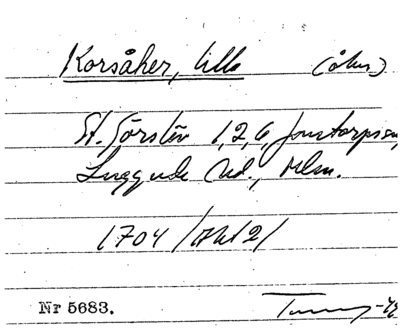 Korsåker, lilla (åker)
St. Görslöv 1,2,6, Jonstorps sn,
Luggude hd., Mlm.
1704 /Akt 2/
Nr 5683.